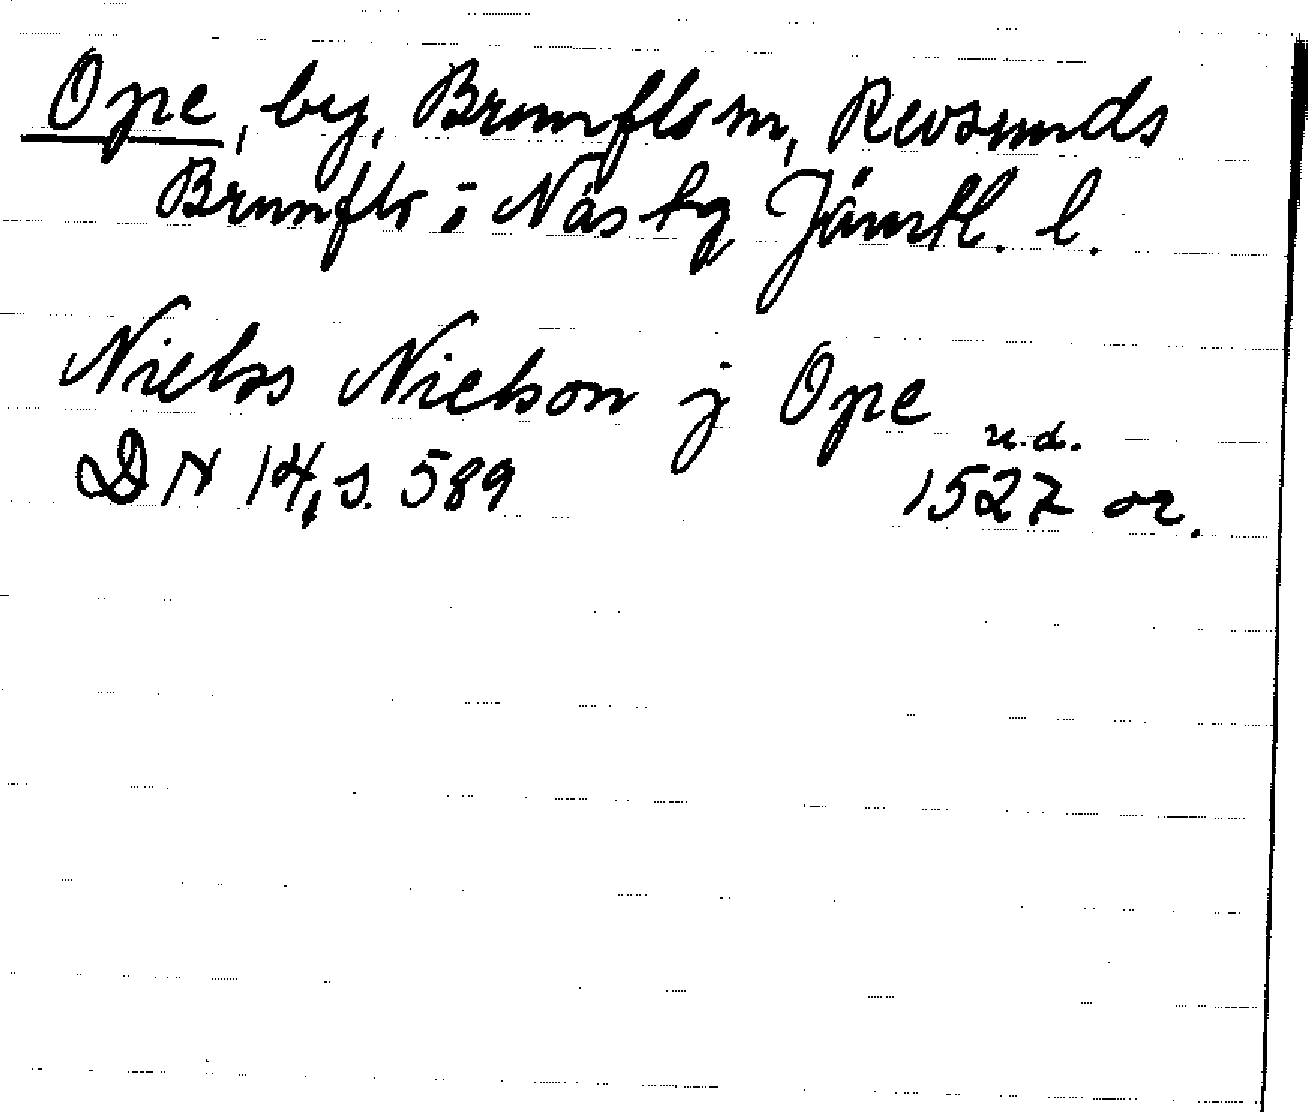 Ope, by, Brunflo sn, Revsunds
Brunflo o Näs tg Jämtl. l.
Nielss Nielson j Ope
u.d.
DN 14, s. 589 1527 or.